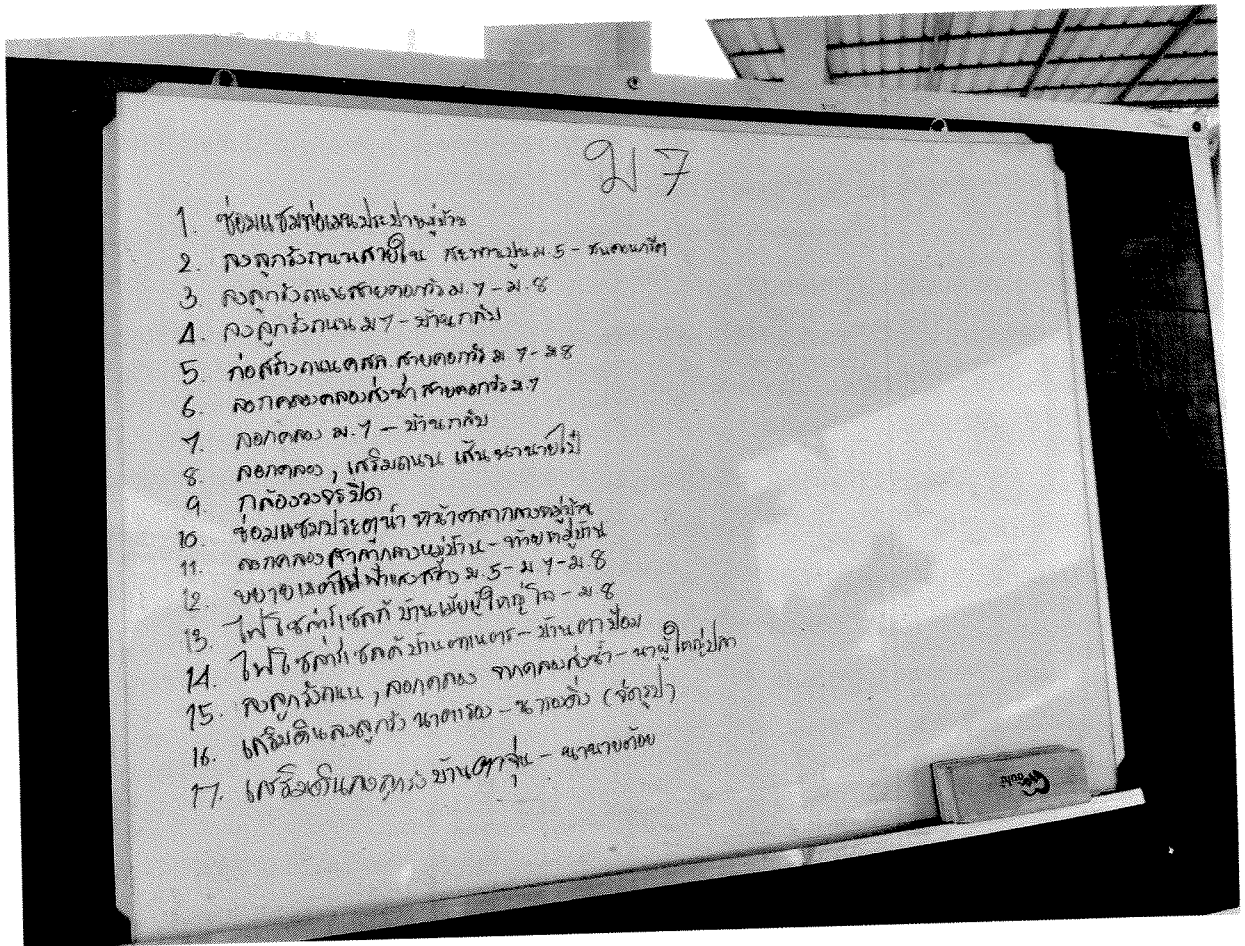 ม 7
1. ซ่อมแซมท่อเมนประปาหมู่บ้าน
2. ลงลูกรังถนนสายใน สะพานปูน ม.5 -
3. ลงลูกรังถนนสายคอกวัว ม.7 - ม.8
4. ลงลูกรังถนน ม7 - บ้านกลับ
5. ก่อสร้างถนน คสล. สายคอกวัว ม 7 - ม8
6. ลอกคลองคลองส่งน้ำ สายคอกวัว ม.7
7. ลอกคลอง ม.7 - บ้านกลับ
8. ลอกคลอง, เสริมถนน เส้นนานาย
9. กล้องวงจรปิด
10. ซ่อมแซมประตูน้ำ หน้าศาลากลางหมู่บ้าน
11. ลอกคลองศาลากลางหมู่บ้าน - ท้ายหมู่บ้าน
12. ขยายเขตไฟฟ้าแสงสว่าง ม.5 - ม 7 - ม.8
13. ไฟโซล่าร์เซลล์ บ้านเมียผู้ใหญ่โก - ม 8
14. ไฟโซล่าร์เซลล์ บ้านตาเนตร - บ้านตาป้อม
15. ลงลูกรังถนน, ลอกคลอง จากคลองส่งน้ำ - นาผู้ใหญ่ปลา
16. เสริมดินลงลูกรัง นาตารอง - นา (จัดรูป)
17. เสริมดินลงลูกรัง บ้านตาจุ่น - นานายต้อย